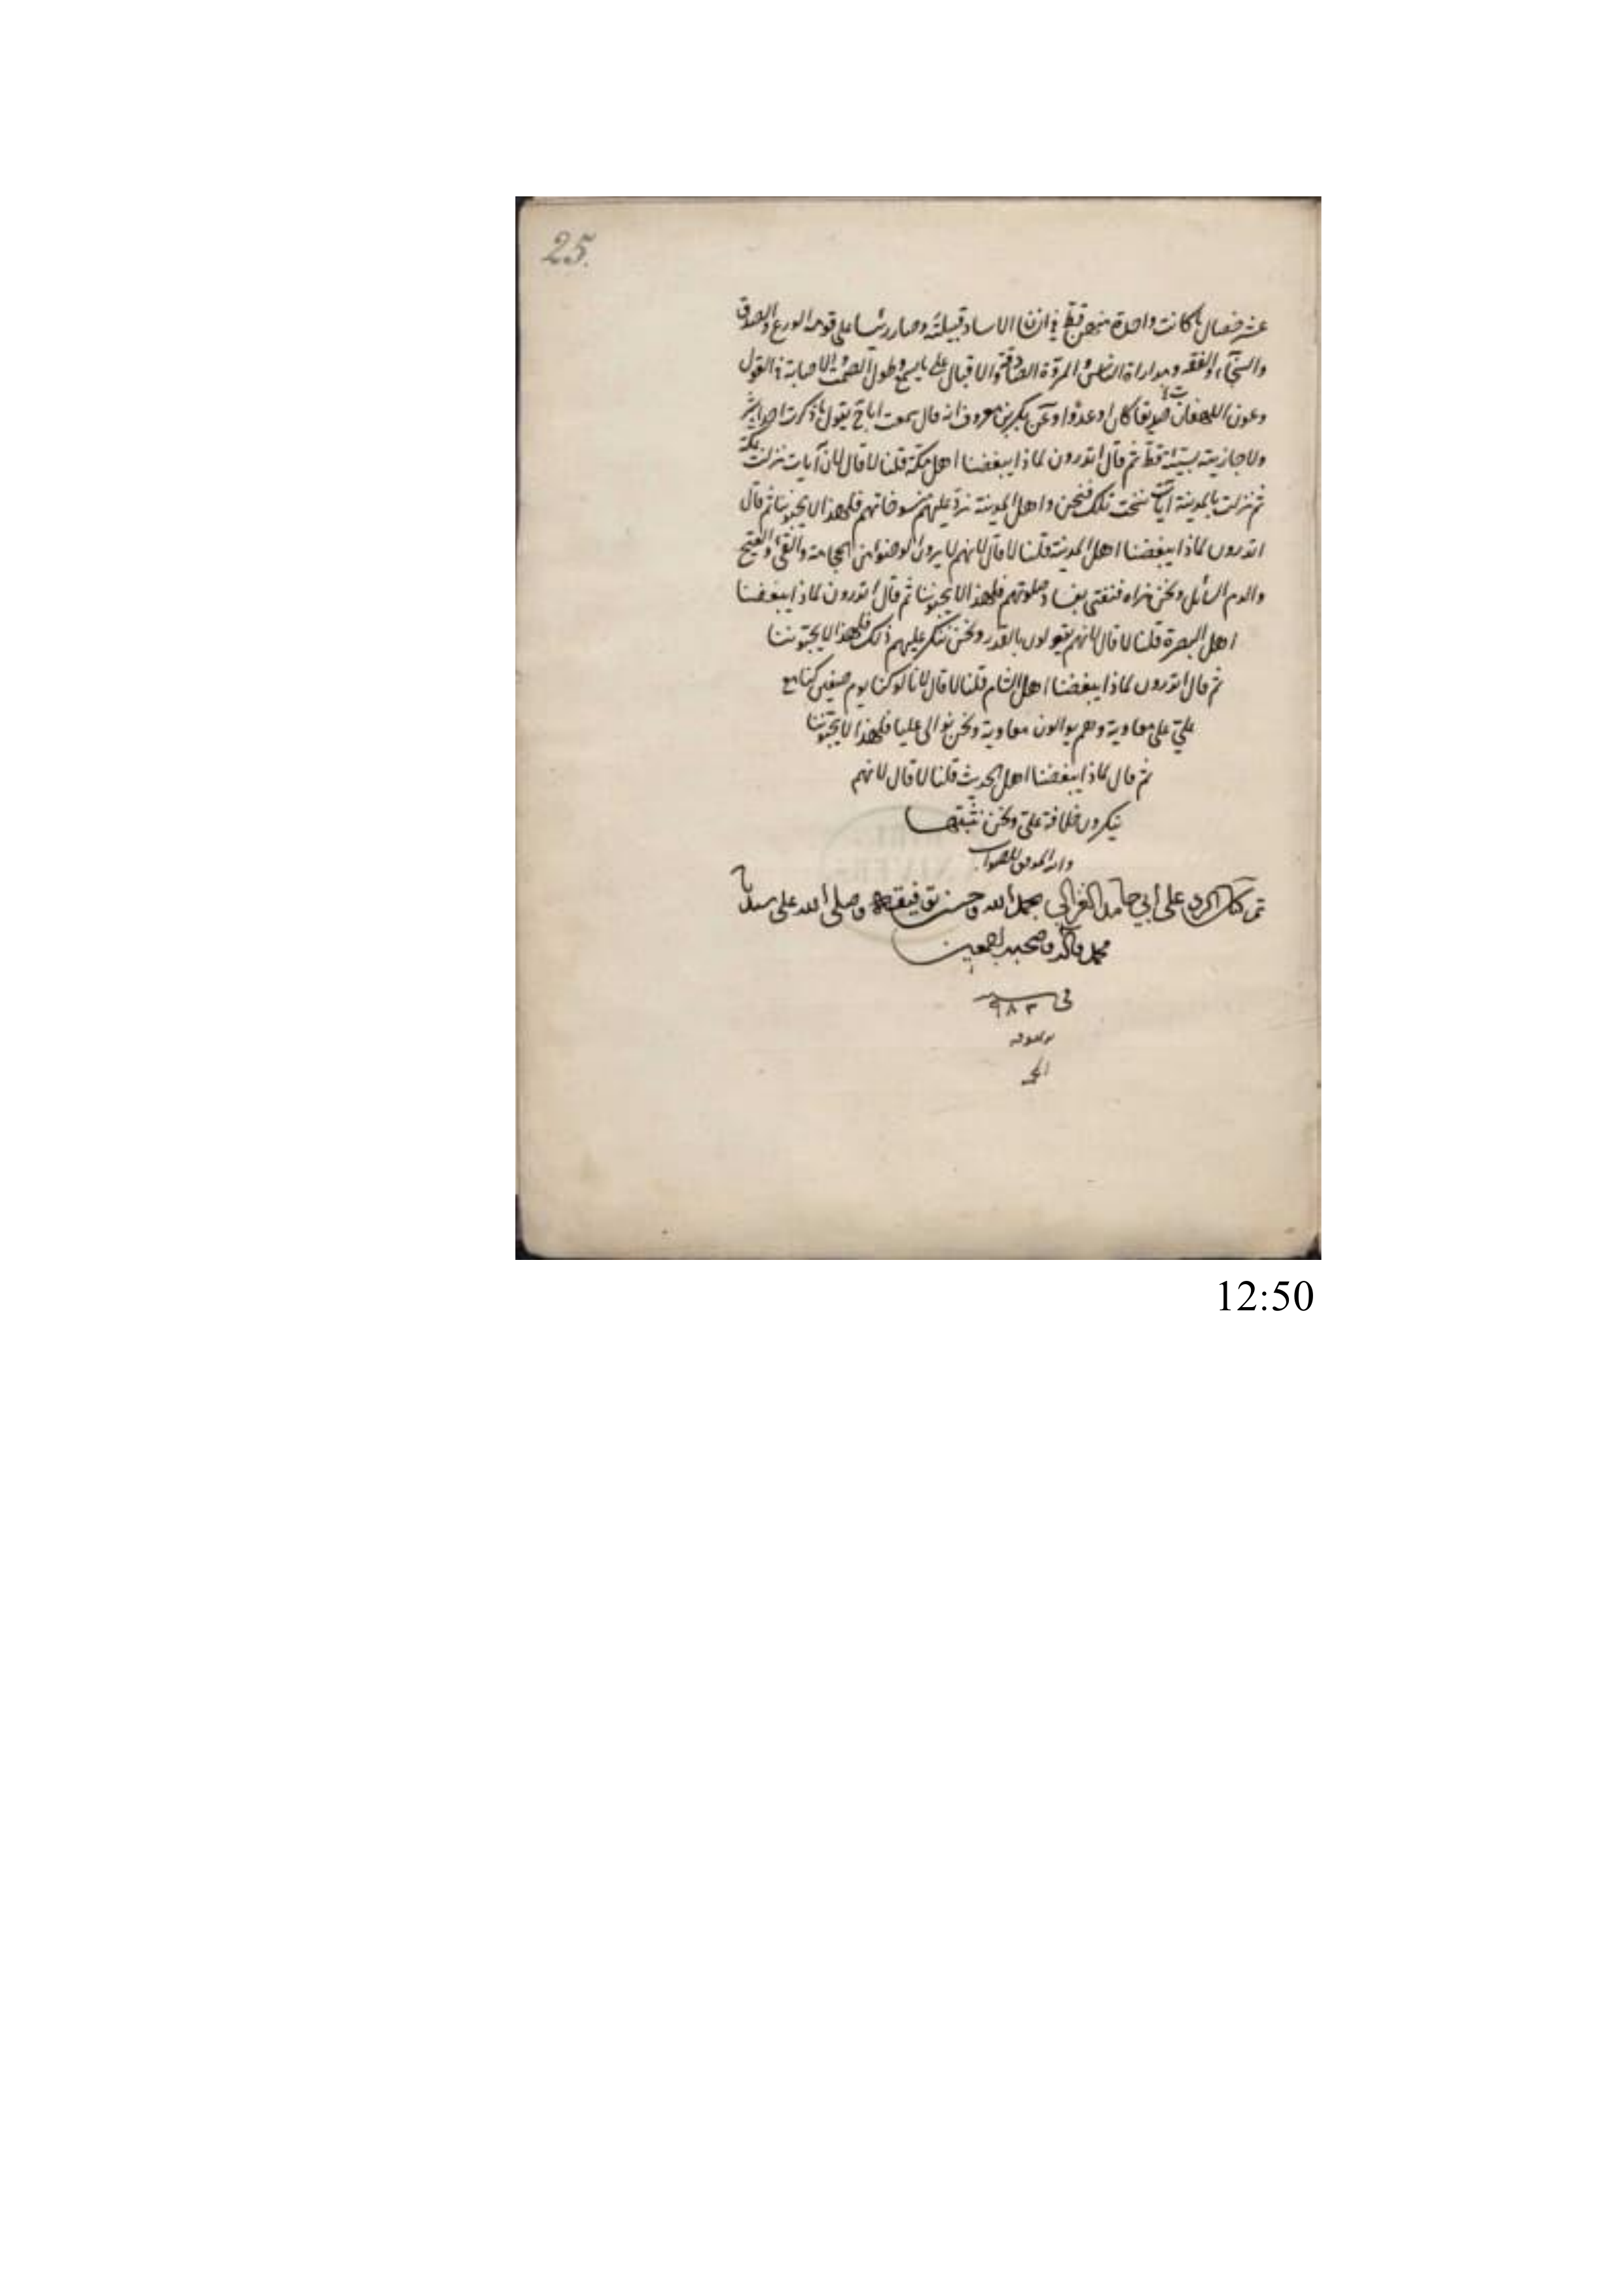 25.
عشر خصال ما كانت واحدة منهن قط في انسان الا ساد قبيلته وصار رئسا على قومه الورع والصدق
والسخاء والفقه ومداراة الناس والمروة الصادقة والاقبال على ما يسمع وطول الصمت والاصابة في القول
وعون اللهفان صديقا كان او عدوا وعن بكير بن معروف انه قال سمعت ابا ح يقول ما ذكرت احدا بشر
ولا جازيته بسيئة قط ثم قال اتدرون لماذا يبغضنا اهل مكة قلنا لا قال لان آيات نزلت بمكة
ثم نزلت بالمدينة آيات نسخت تلك فنحن واهل المدينة نرد عليهم منسوخاتهم فلهذا لا يحبوننا ثم قال
اتدرون لماذا يبغضنا اهل المدينة قلنا لا قال لانهم لا يرون الوضوء من الحجامة والقئ والقيح
والدم السائل ونحن نراه فنفتي بفساد صلوتهم فلهذا لا يحبوننا ثم قال اتدرون لماذا يبغضنا
اهل البصرة قلنا لا قال لانهم يقولون بالقدر ونحن ننكر عليهم ذلك فلهذا لا يحبوننا
ثم قال اتدرون لماذا يبغضنا اهل الشام قلنا لا قال لانا لو كنا يوم صفين كنا مع
علي على معاوية وهم يوالون معاوية ونحن نوالى عليا فلهذا لا يحبوننا
ثم قال لماذا يبغضنا اهل الحديث قلنا لا قال لانهم
ينكرون خلافة علي ونحن نثبتها
والله الموفق للصواب
تم كتاب الرد على ابي حامد الغزالي بحمد الله وحسن توفيقه وصلى الله على سيدنا
محمد وآله وصحبه اجمعين
في سنه ٩٨٣
12:50